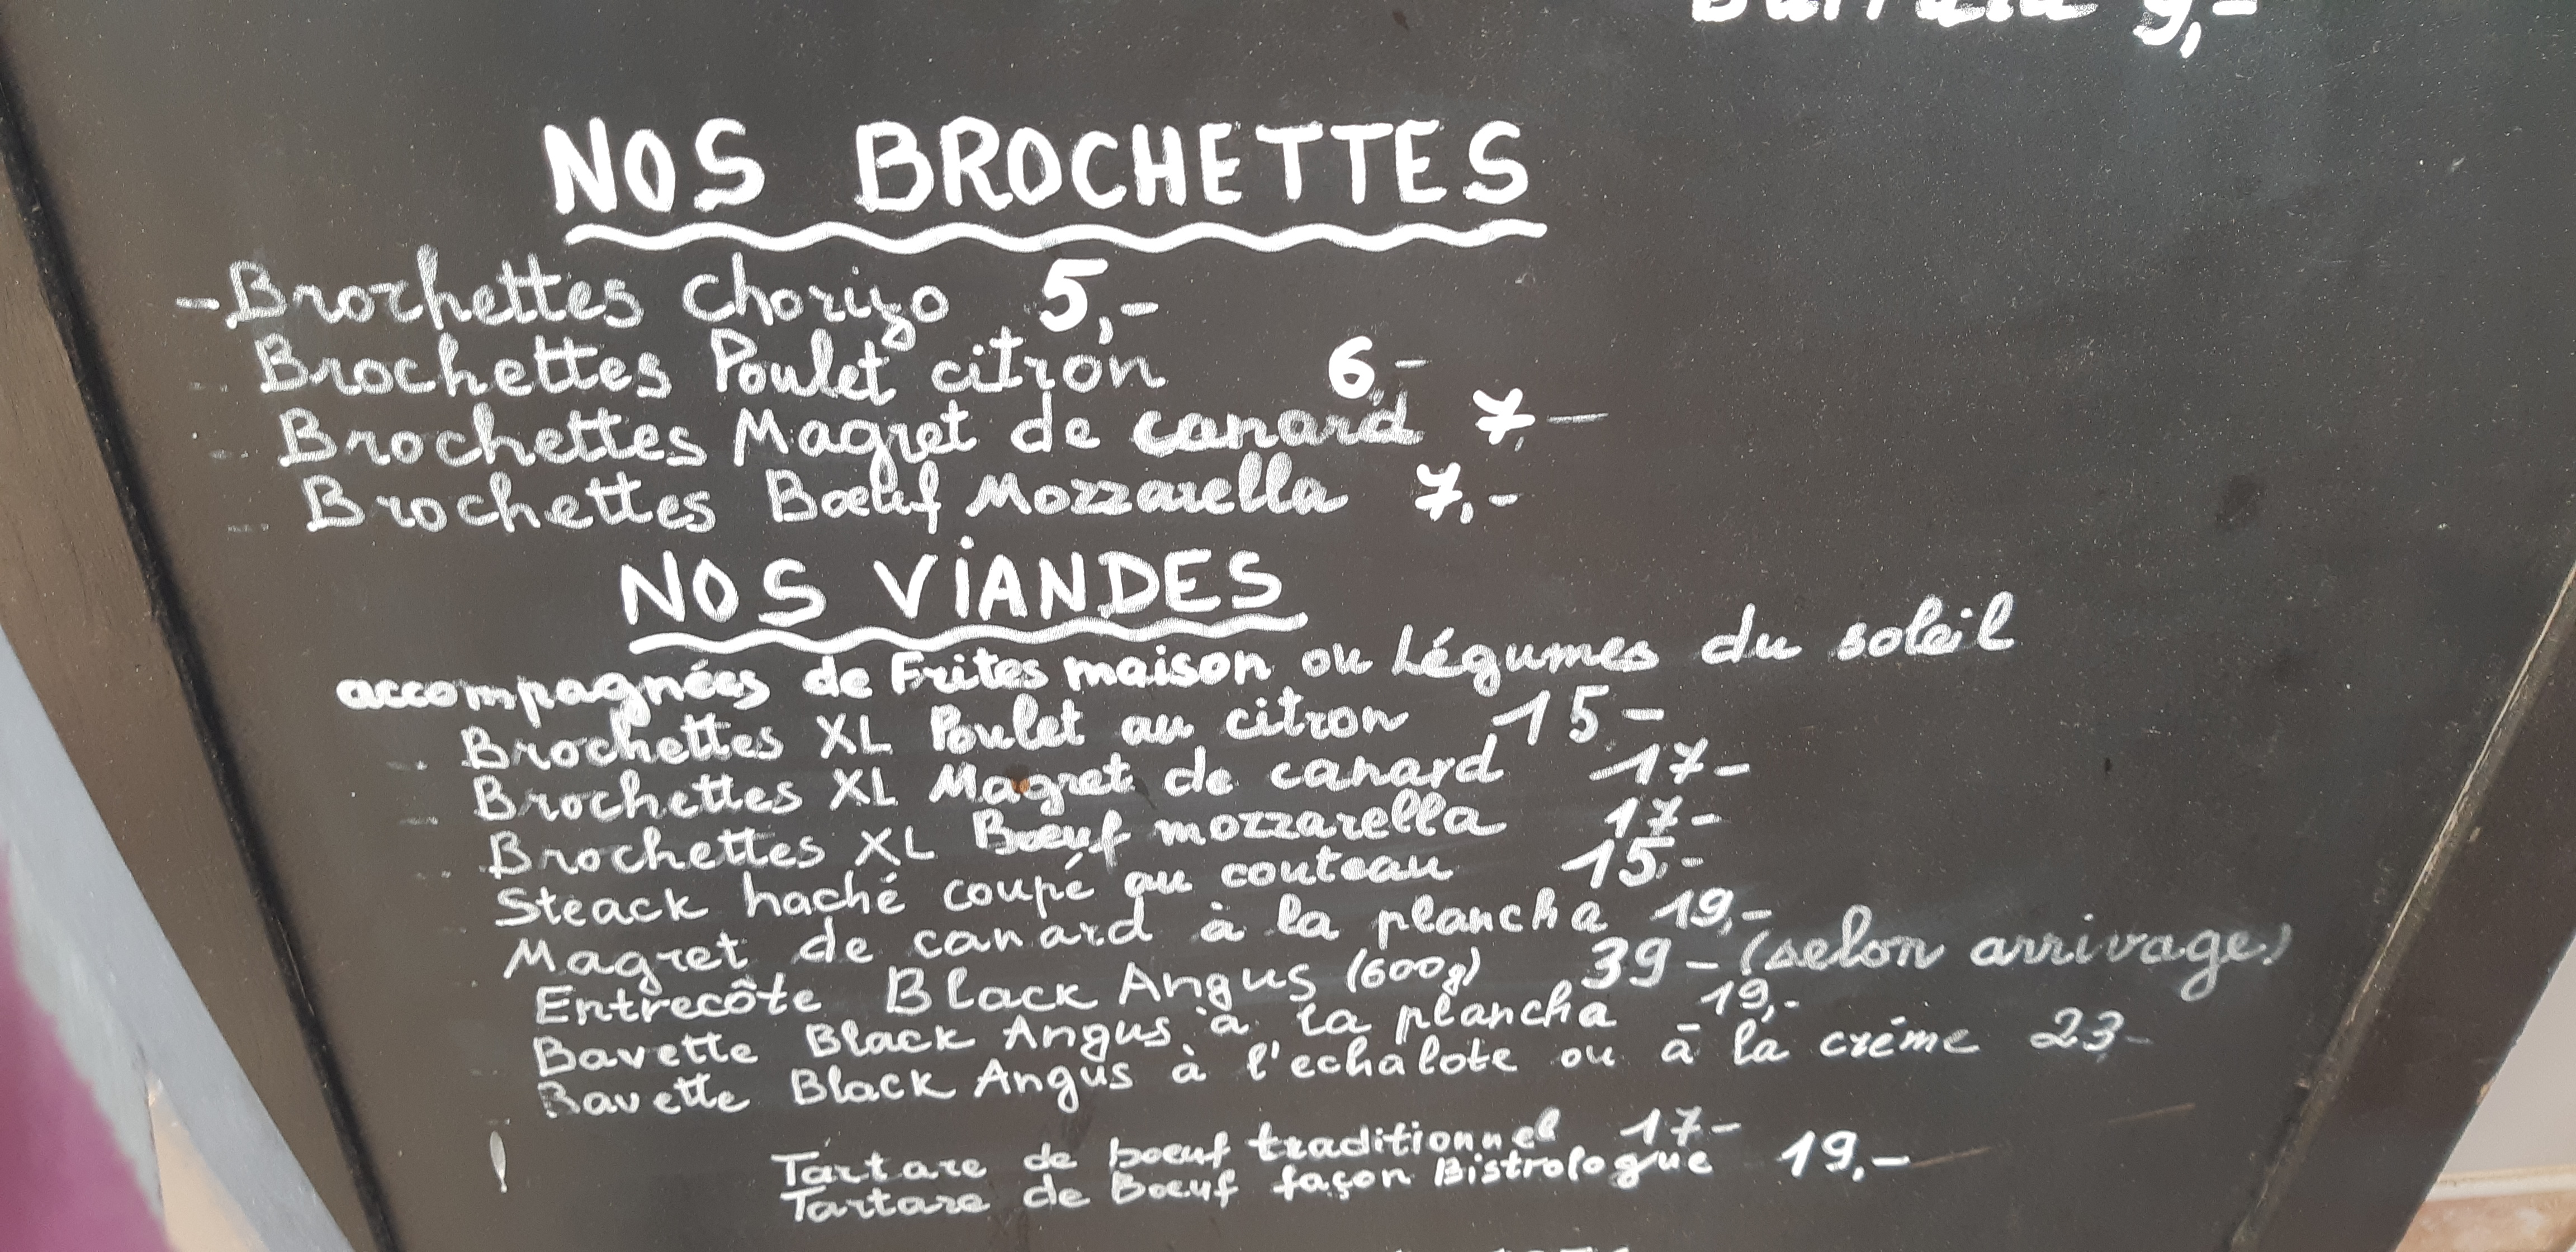 Burrata 9,-
NOS BROCHETTES
- Brochettes chorizo 5,-
-- Brochettes Poulet citron 6,-
-- Brochettes Magret de canard 7,-
-- Brochettes Bœuf Mozzarella 7,-
NOS VIANDES
accompagnées de Frites maison ou Légumes du soleil
-- Brochettes XL Poulet au citron 15,-
-- Brochettes XL Magret de canard 17-
-- Brochettes XL Bœuf mozzarella 17-
Steack haché coupé au couteau 15,-
Magret de canard à la plancha 19,-
Entrecôte Black Angus (600g) 39- (selon arrivage)
Bavette Black Angus à la plancha 19,-
Bavette Black Angus à l'echalote ou à la créme 23-
Tartare de boeuf traditionnel 17-
Tartare de Boeuf façon Bistrologue 19,-